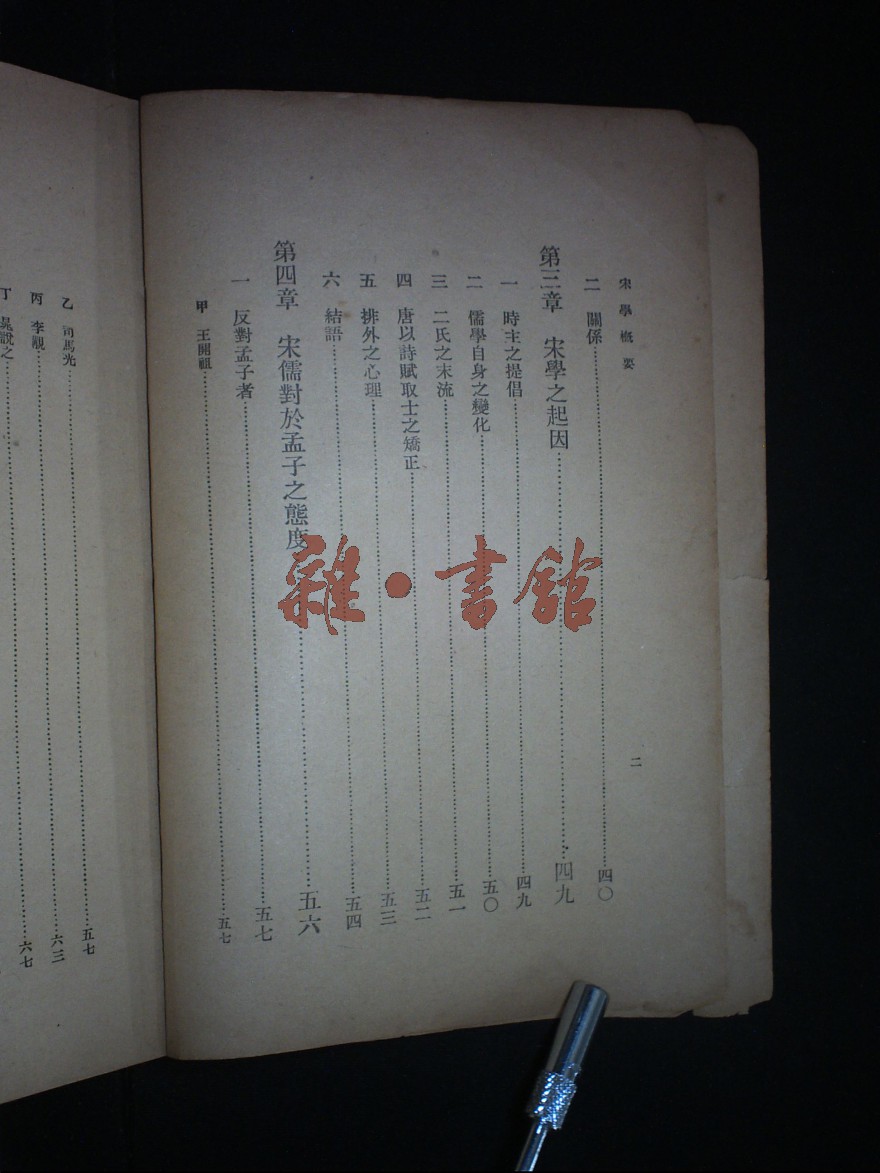 宋學概要
二
二 關係……四〇
第三章 宋學之起因……四九
一 時主之提倡……四九
二 儒學自身之變化……五〇
三 二氏之末流……五一
四 唐以詩賦取士之矯正……五二
五 排外之心理……五三
六 結語……五四
第四章 宋儒對於孟子之態度……五六
一 反對孟子者……五七
甲 王開祖……五七
乙 司馬光……五七
丙 李覯……六三
丁 晁說之……六七
雜·書館